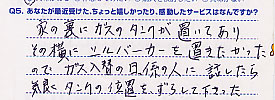 Q5. あなたが最近受けた、ちょっと嬉しかったり、感動したサービスはなんですか?
家の裏にガスのタンクが置いてあり
その横にシルバーカーを置きたかった
のでガス入替の日係の人に話したら
気良くタンクの位置をずらして下さった